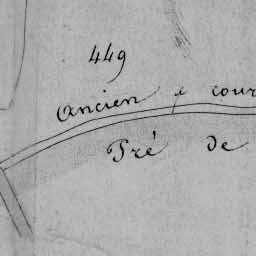 449
Ancien cour
Pré de